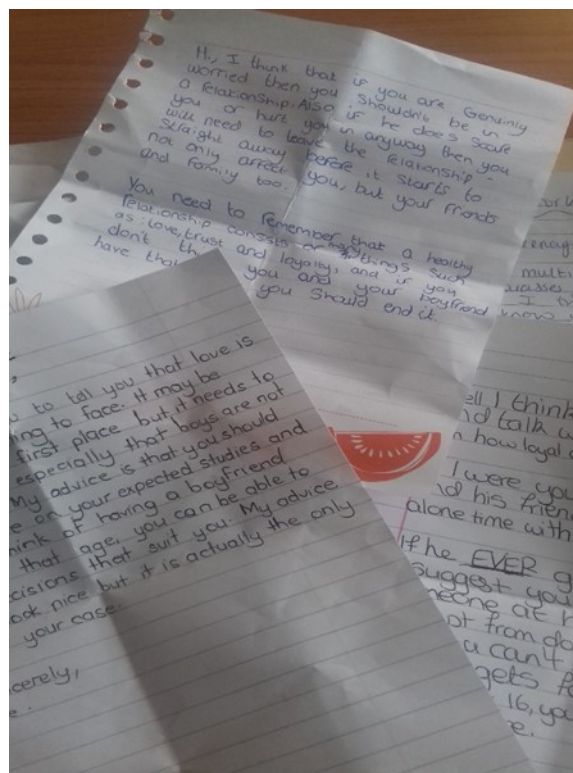 Hi, I think that if you are Genuinly
worried then you shouldn't be in
a relationship. Also if he does scare
you or hurt you in anyway then you
will need to leave the relationship
straight away before it starts to
not only affect you, but your friends
and family too.
You need to remember that a healthy
relationship consists of many things such
as: love, trust and loyalty, and if you
don't th you and your boyfriend
have that you should end it.
to tell you that love is
ing to face. It may be
first place but it needs to
especially that boys are not
My advice is that you should
e on your expected studies and
ink of having a boyfriend
that age, you can be able to
cisions that suit you. My advice
ook nice but it is actually the only
your case.
cerely,
multi
I
know
ell I think
nd talk w
how loyal
I were you
nd his frien
alone time with
If he EVER g
suggest you
meone at h
ot from do
u can't
gets
16, you
e.